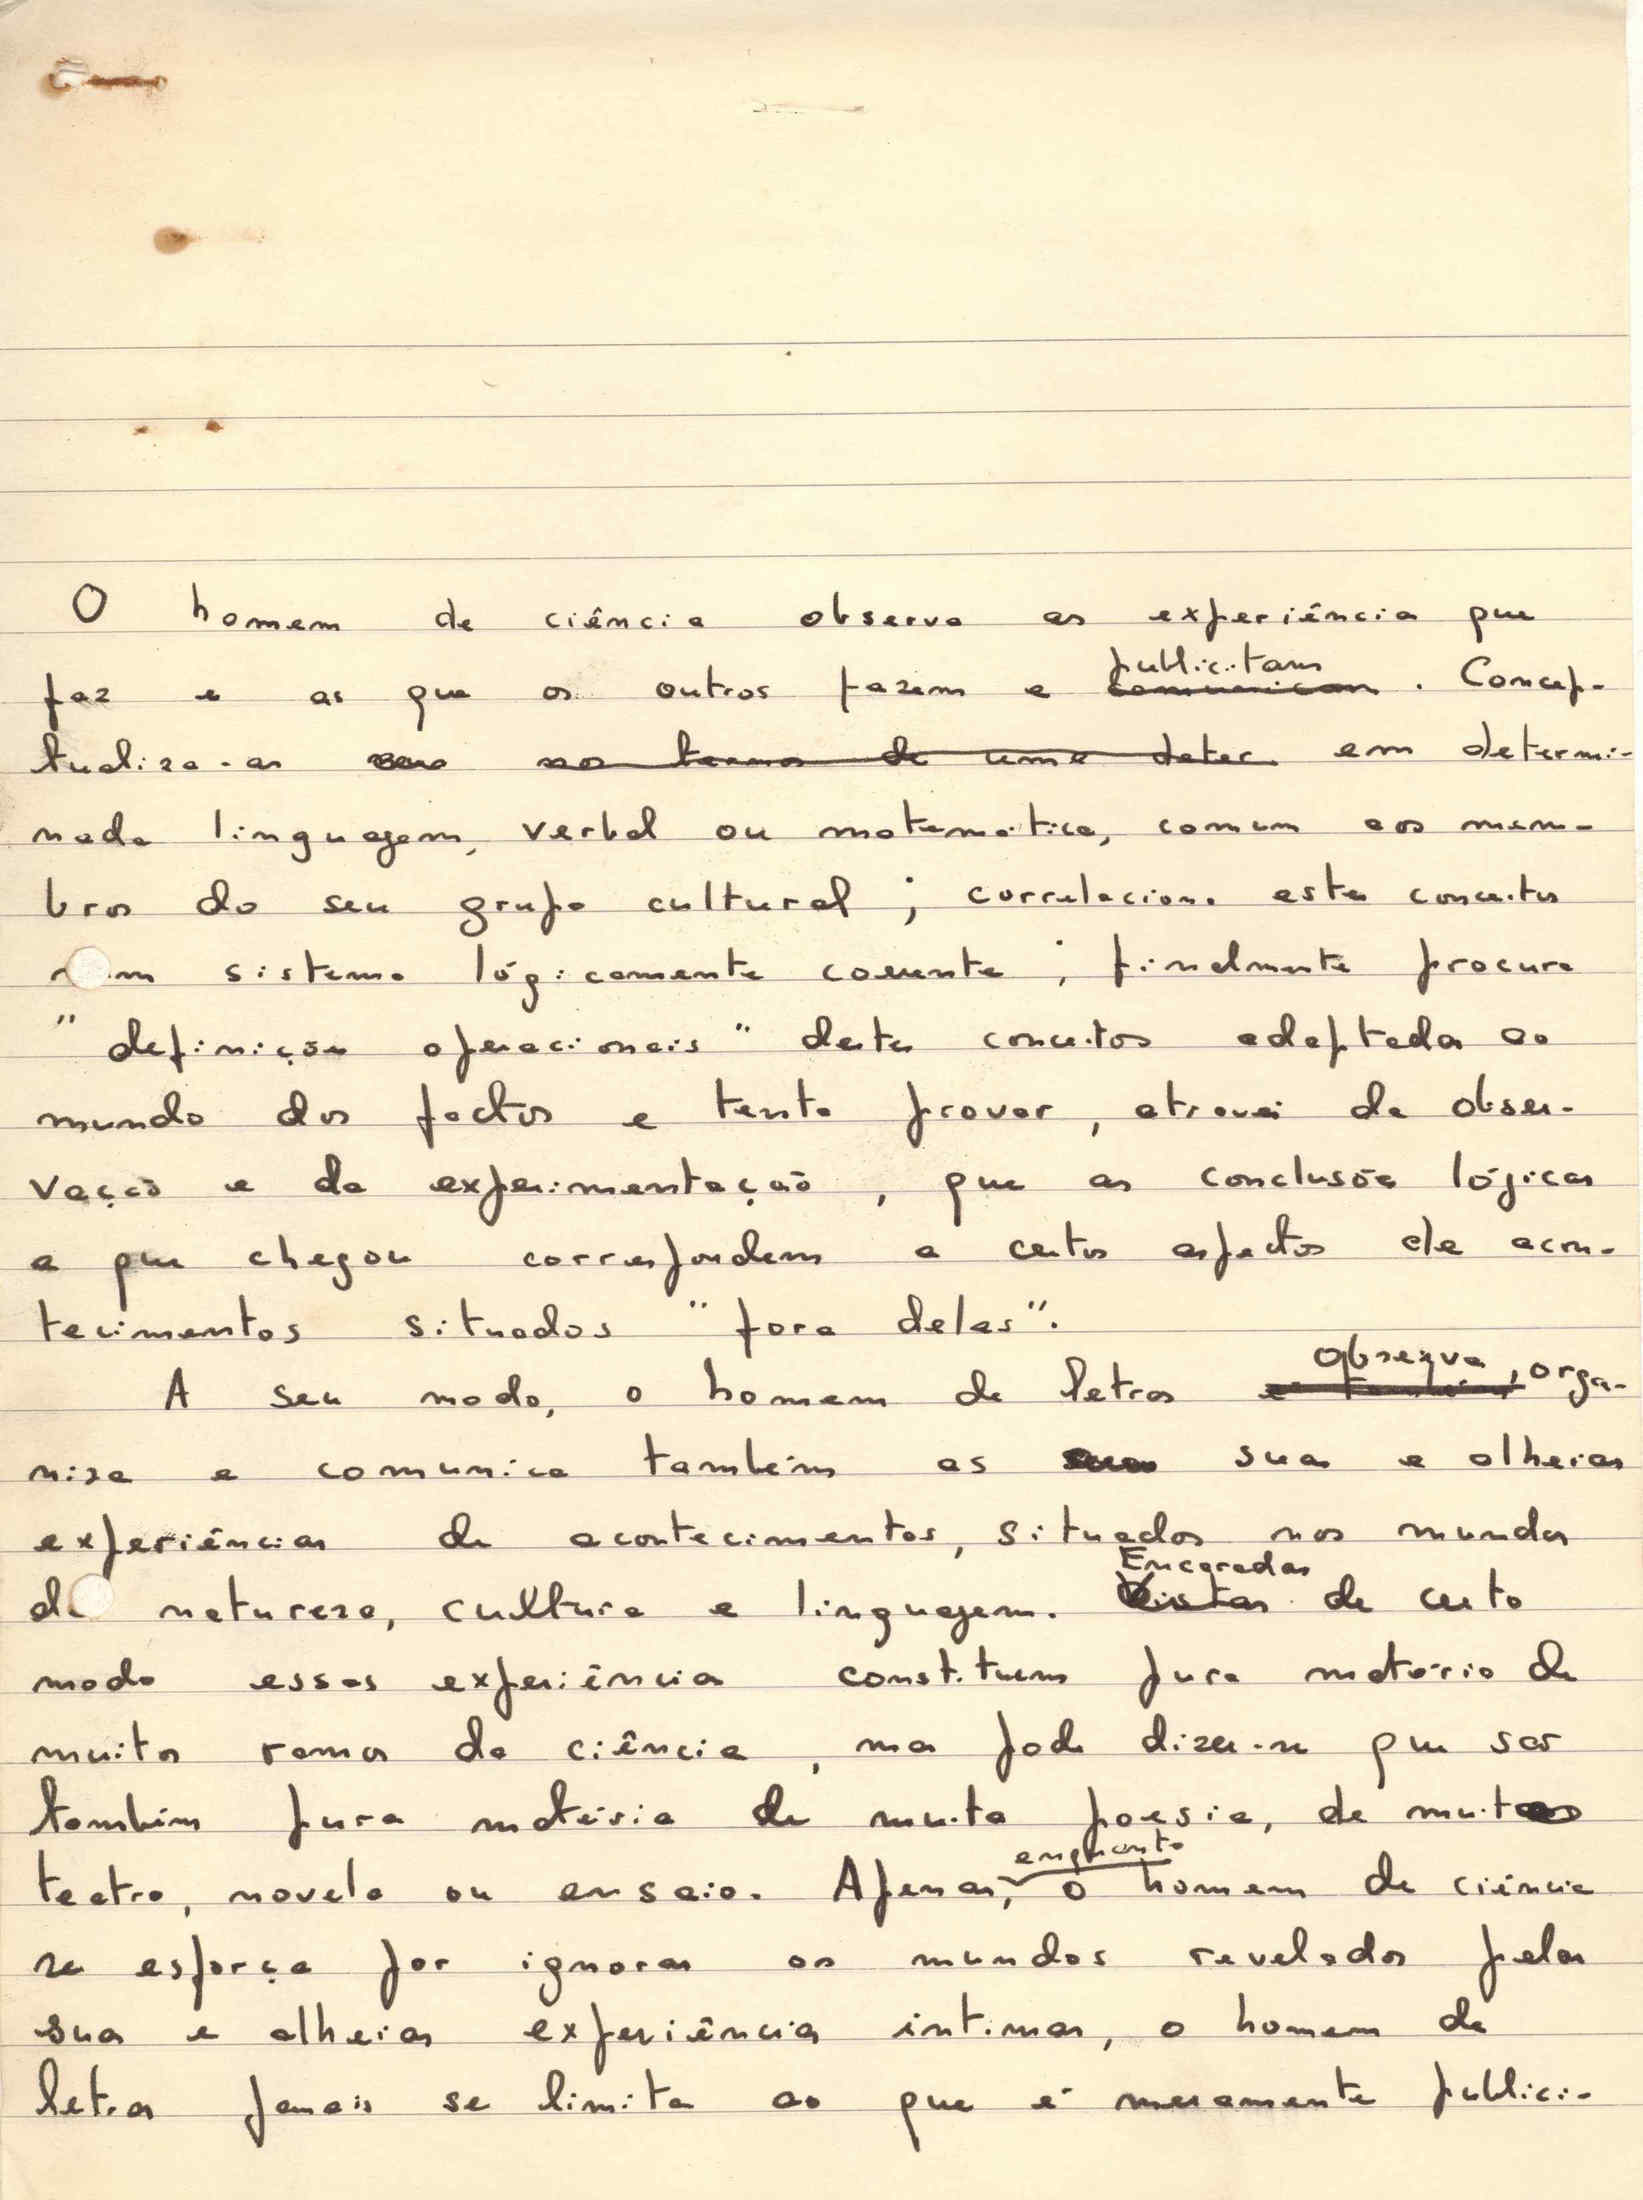 O homem de ciência observa as experiências que
faz e as que os outros fazem e publicitam. Concep-
tualiza-as em determi-
nada linguagem, verbal ou matemática, comum aos mem-
bros do seu grupo cultural; correlaciona estes conceitos
num sistema lógicamente coerente; finalmente procura
"definições operacionais" destes conceitos adaptadas ao
mundo dos factos e tenta provar, através da obser-
vação e da experimentação, que as conclusões lógicas
a que chegou correspondem a certos aspectos de acon-
tecimentos situados "fora delas".
A seu modo, o homem de letras observa, orga-
niza e comunica também as suas e alheias
experiências de acontecimentos, situados nos mundos
da natureza, cultura e linguagem. Encaradas de certo
modo essas experiências constituem pura matéria de
muitos ramos da ciência, mas pode dizer-se que são
também pura matéria de muita poesia, de muito
teatro, novela ou ensaio. Apenas, enquanto o homem de ciência
se esforça por ignorar os mundos revelados pelas
suas e alheias experiências íntimas, o homem de
letras jamais se limita ao que é meramente publici-